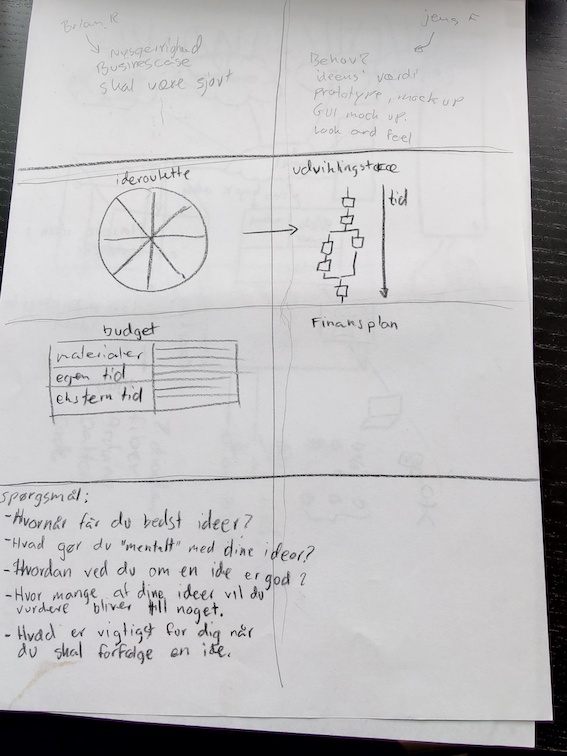 Brian R
Nysgerrighed
Businescase
skal være sjovt
jens F
Behov?
ideens' værdi
prototype, mock up
GUI mock up.
Look and feel
ideroulette
udviklingstræe
tid
budget
materialer
egen tid
ekstern tid
Finansplan
spørgsmål:
-Hvornår får du bedst ideer?
-Hvad gør du "mentalt" med dine ideer?
-Hvordan ved du om en ide er god?
-Hvor mange af dine ideer vil du
vurdere bliver till noget.
- Hvad er vigtigst for dig når
du skal forfølge en ide.